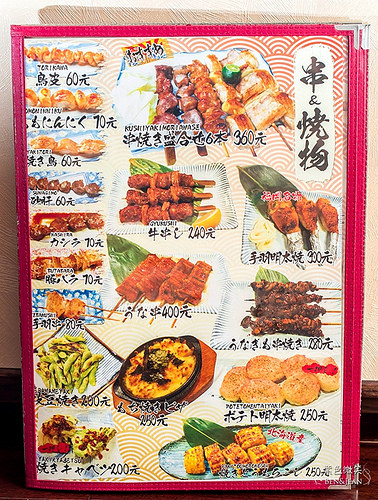 串&焼物
おすすめ
TORIKAWA
鳥皮 60元
ももにんにく 70元
YAKITORI
焼き鳥 60元
SUNAGIMO
砂肝 60元
KASHIRA
カシラ 70元
BUTABARA
豚バラ 70元
80元
KUSHIYAKIMORIAWASE
串焼き盛合せ6本 360元
GYUKUSHI
牛串し 240元
福岡名物
手羽明太焼 300元
うな串400元
うなきも串焼き 280元
枝豆焼き250元
もち焼きピザ
250元
POTETOMENTAIYAKI
ポテト明太焼 250元
YAKIKYABETSU
焼きキャベツ200元
北海道産
焼きとうもろこし 250元
BEN&JEAN